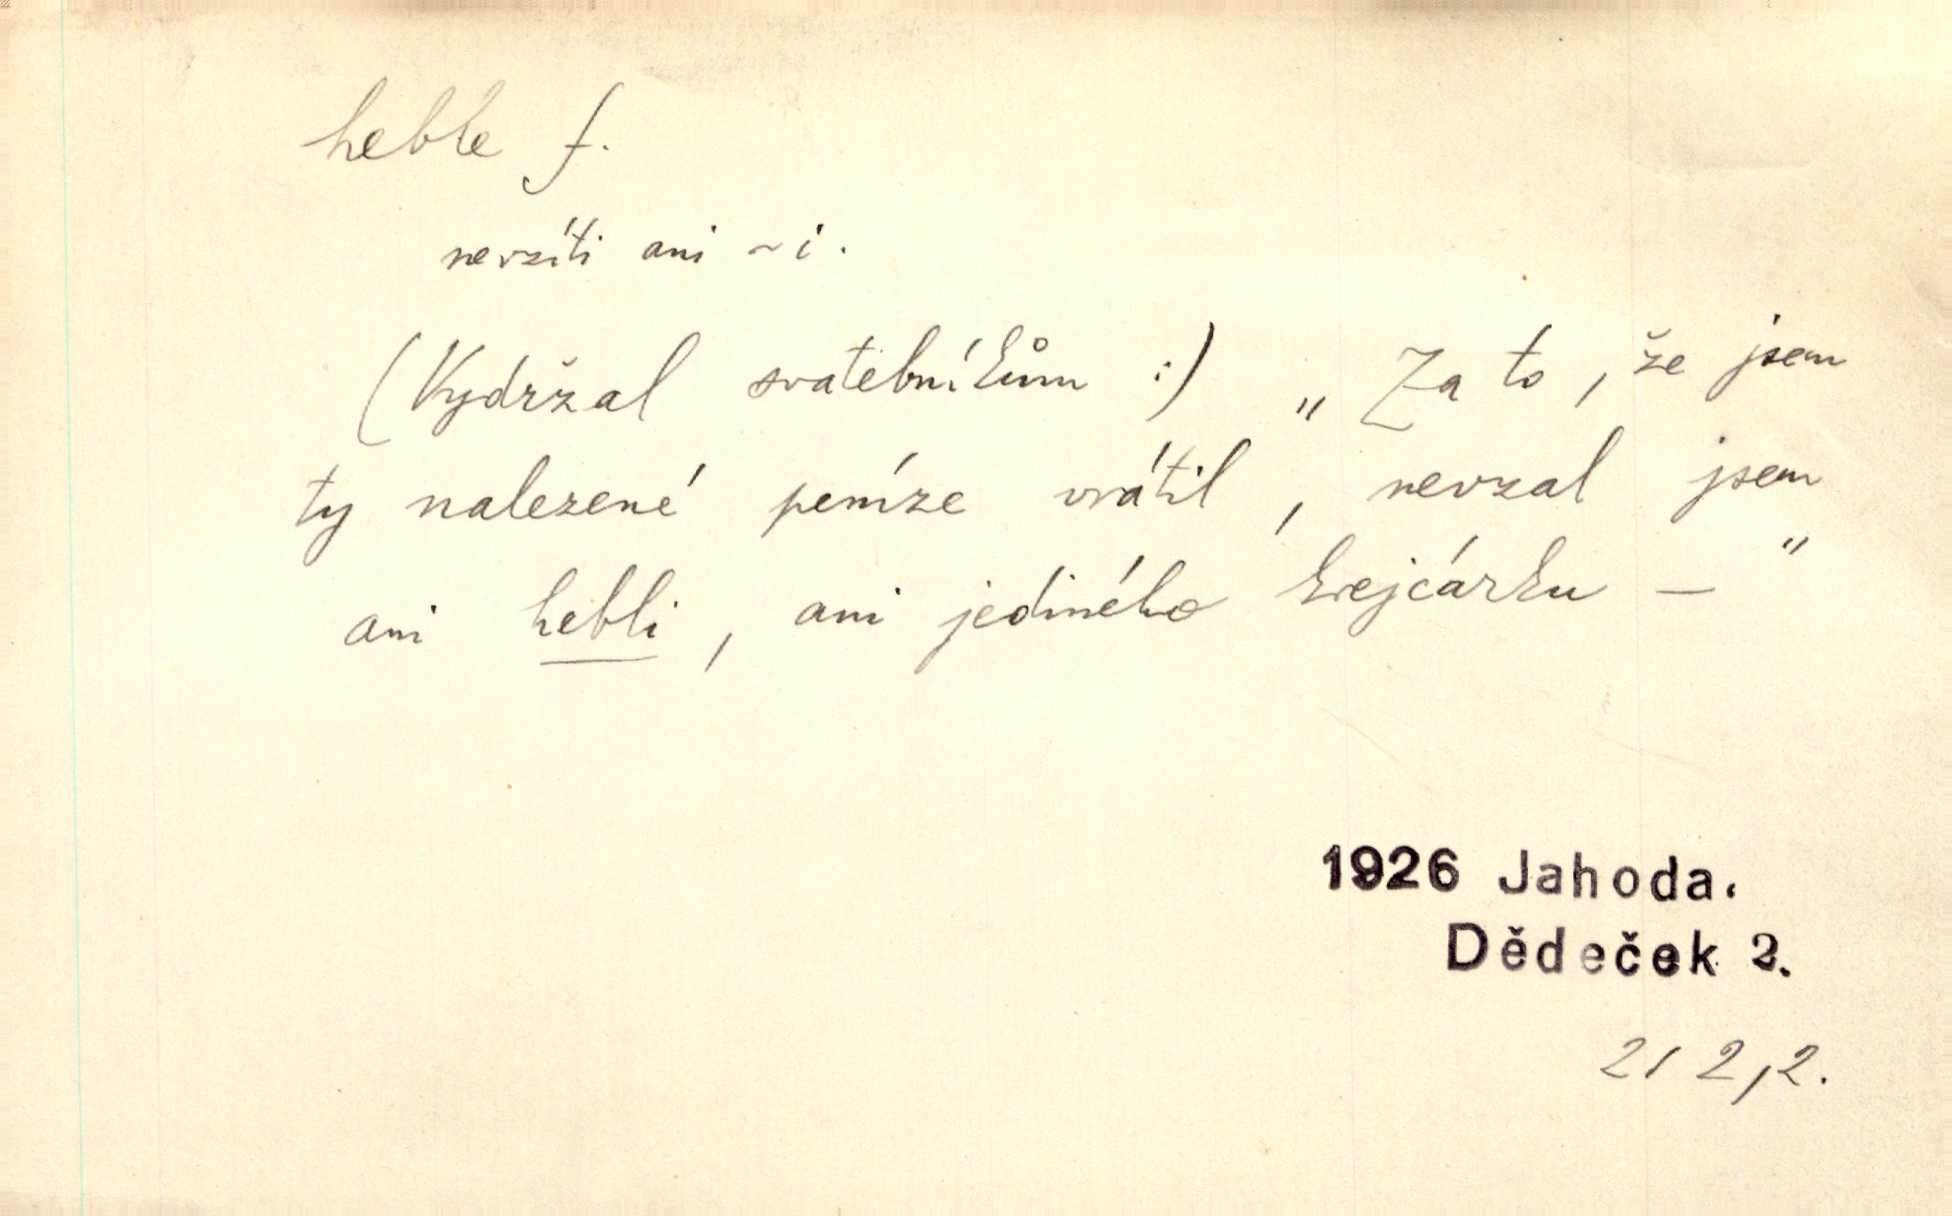 heble f.
nevzíti ani ~i.
(Vydržal svatebníkům :) „Za to, že jsem
ty nalezené peníze vrátil, nevzal jsem
ani hebli, ani jediného krejcárku — "
1926 Jahoda.
Dědeček 2.
212,2.